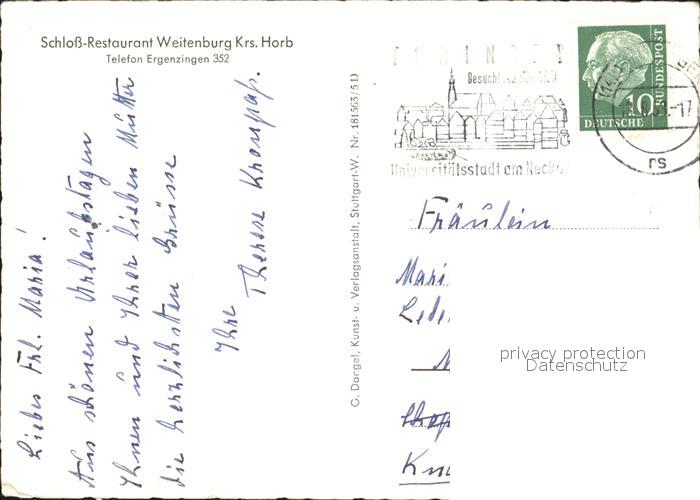 Schloß-Restaurant Weitenburg Krs. Horb
Telefon Ergenzingen 352
Liebes Frl. Maria!
Aus schönen Urlaubstagen
Ihnen und Ihrer lieben Mutter
die herzlichsten Grüsse
Ihre
Therese
G. Dangel, Kunst- u. Verlagsanstalt, Stuttgart-W. Nr. 181563/5 D
Besucht
Universitätsstadt am Neckar
DEUTSCHE
BUNDESPOST
10
-17
Fräulein
Mari
Lede
privacy protection
Datenschutz